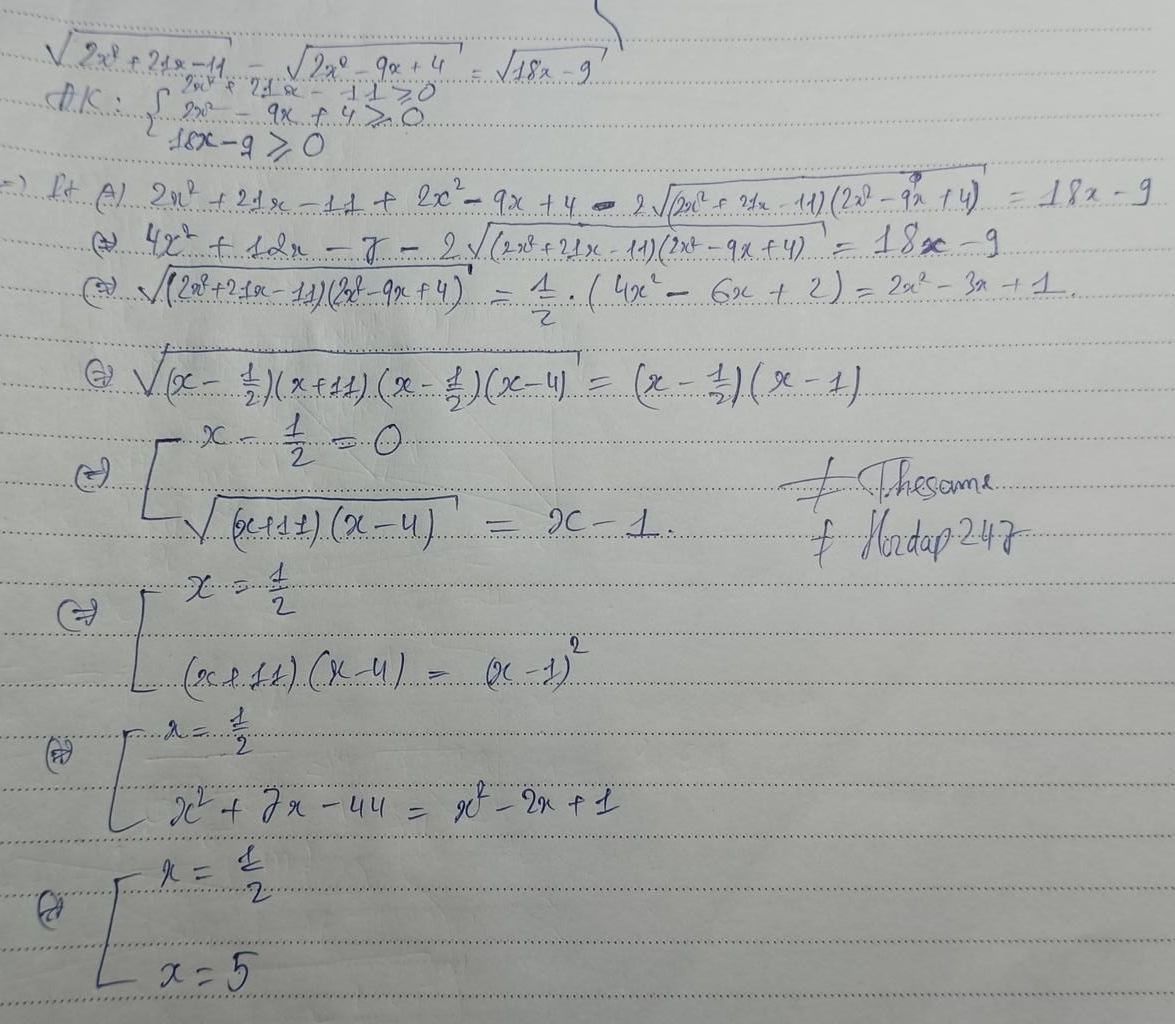 √(2x²+21x-11) - √(2x²-9x+4) = √(18x-9)
ĐK: { 2x²+21x-11 ≥ 0
2x² - 9x + 4 ≥ 0
18x-9 ≥ 0
=> Pt (⇔) 2x² + 21x - 11 + 2x² - 9x + 4 - 2√((2x²+21x-11)(2x²-9x+4)) = 18x - 9
(⇔) 4x² + 12x - 7 - 2√((2x²+21x-11)(2x²-9x+4)) = 18x - 9
(⇔) √((2x²+21x-11)(2x²-9x+4)) = 1/2 . (4x² - 6x + 2) = 2x² - 3x + 1.
(⇔) √((x - 1/2)(x+11)(x - 1/2)(x-4)) = (x - 1/2)(x - 1)
(⇔) [ x - 1/2 = 0
√((x+11)(x-4)) = x - 1.
≠ Thesame
≠ Hoidap247
(⇔) [ x = 1/2
(x+11)(x-4) = (x-1)²
(⇔) [ x = 1/2
x² + 7x - 44 = x² - 2x + 1
(⇔) [ x = 1/2
x = 5